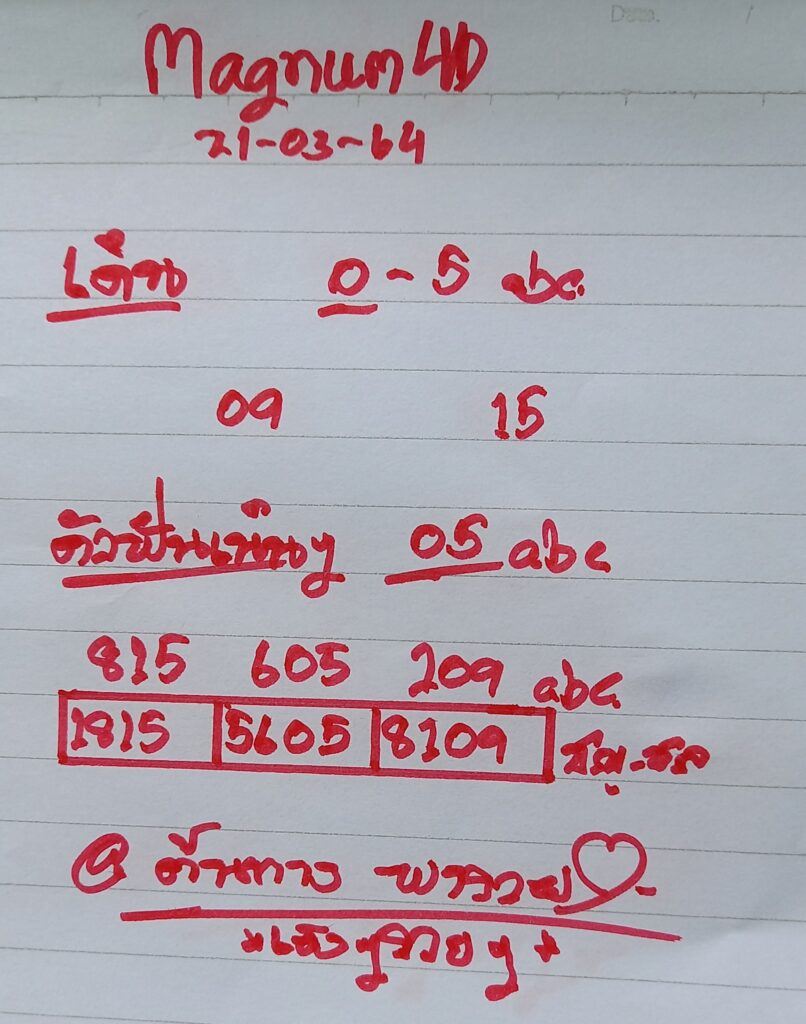 Date. /
Magnum 4D
21-03-64
เด่น 0-5 abc.
09 15
ตัวฟันเน้นๆ 05 abc
815 605 209 abc
1815 5605 8109
@ต้นทาง พารวย
*เฮงๆรวยๆ*